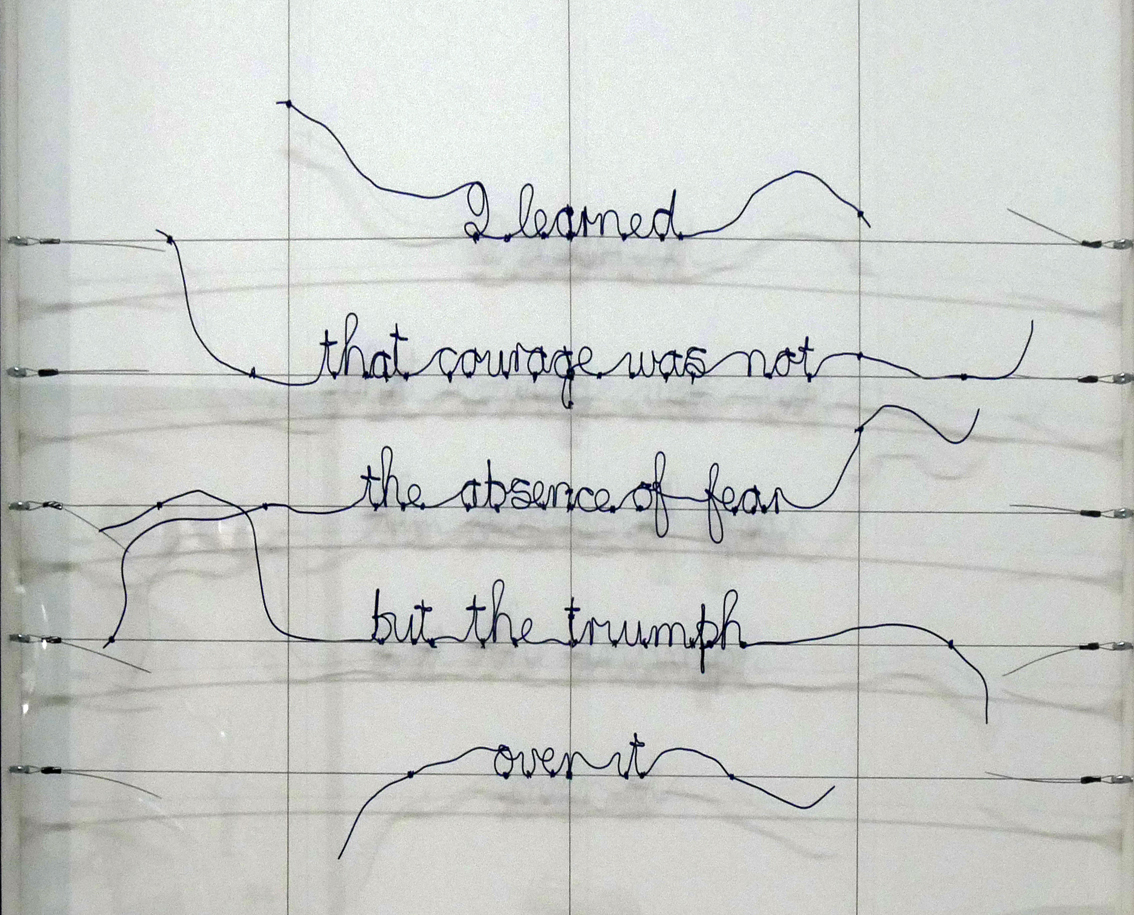 I learned
that courage was not
the absence of fear
but the trumph
over it